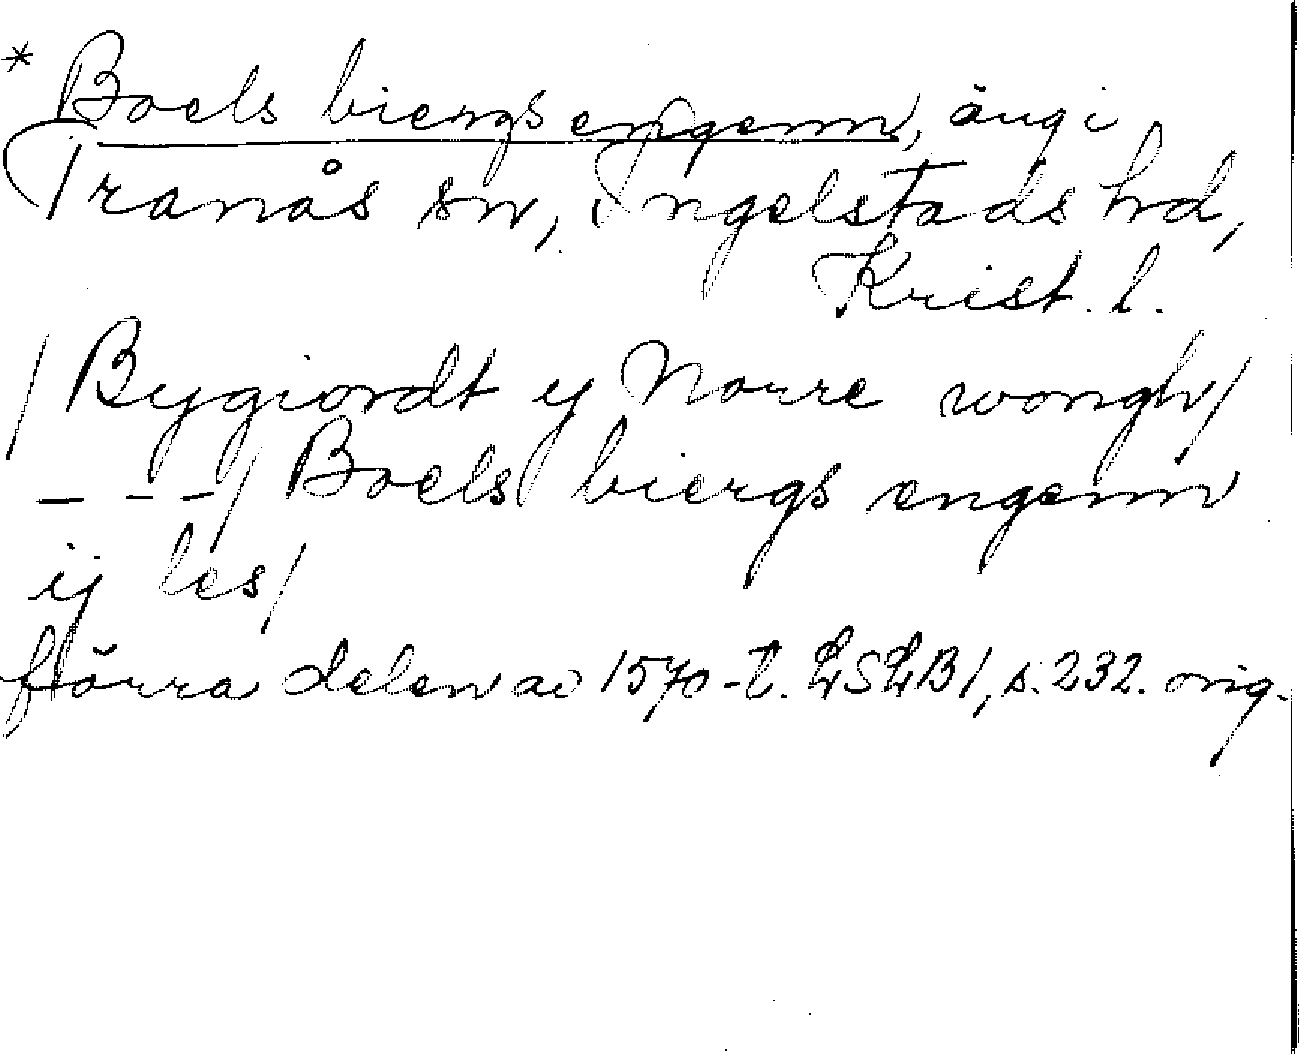 * Boels biergs engenn, äng i
Tranås sn, Ingelstads hrd,
Krist. l.
/ Bygiordt y Norre wongh/
_ _ _ / Boels biergs engenn
ij les/
förra delen av 1570-t. LSLB1, s. 232. orig.